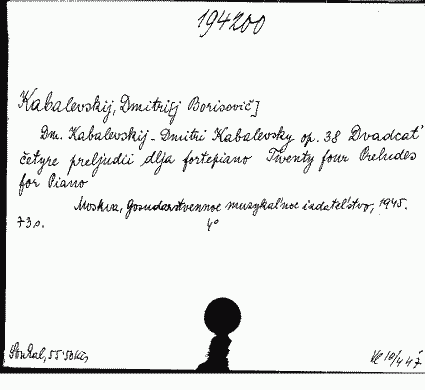 194200
Kabalevskij, Dmitri[j Borisovič]
Dm. Kabalevskij - Dmitri Kabalevsky op. 38 Dvadcat'
četyre preljudii dlja fortepiano Twenty four Preludes
for Piano
Moskva, Gosudarstvennoe muzykal'noe izdatel'stvo, 1945.
73 s. 4°
55